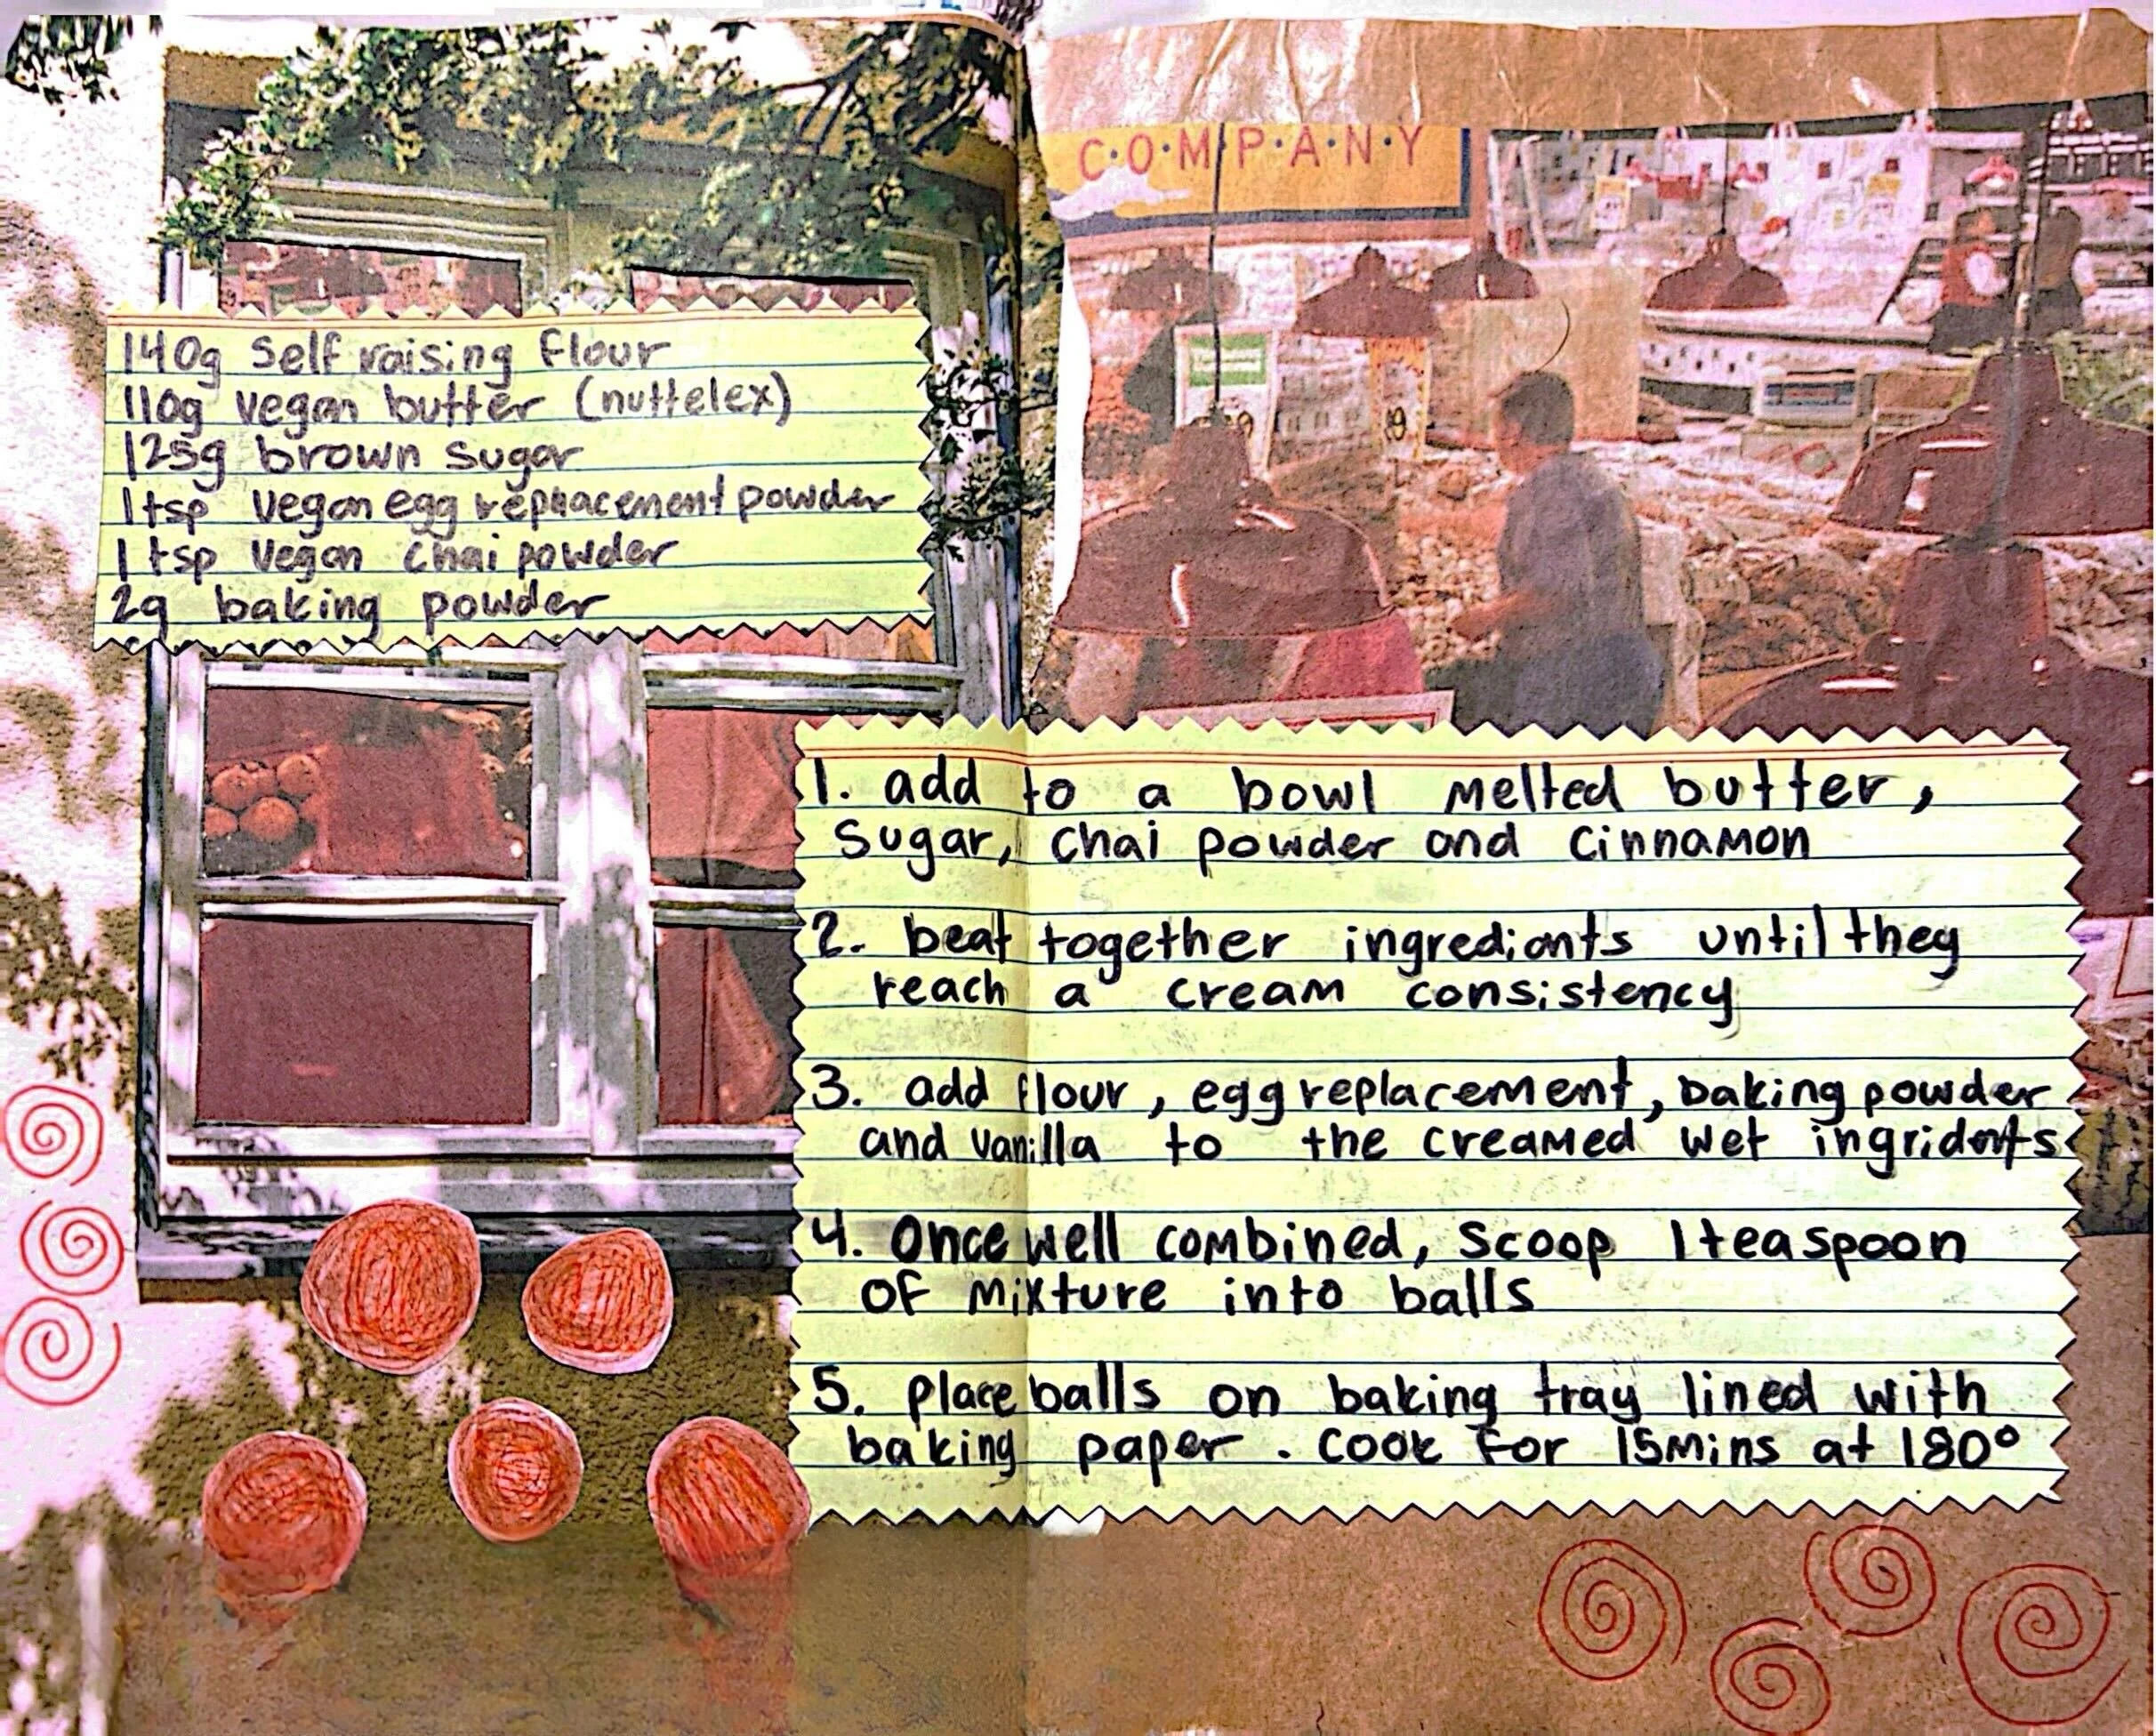 C·O·M·P·A·N·Y
140g Self raising flour
110g vegan butter (nuttelex)
125g brown sugar
1tsp vegan egg replacement powder
1 tsp vegan chai powder
2g baking powder
1. add to a bowl melted butter,
sugar, chai powder and cinnamon
2. beat together ingredients until they
reach a cream consistency
3. add flour, egg replacement, baking powder
and vanilla to the creamed wet ingridents
4. Once well combined, scoop 1 teaspoon
of mixture into balls
5. place balls on baking tray lined with
baking paper. Cook for 15mins at 180°